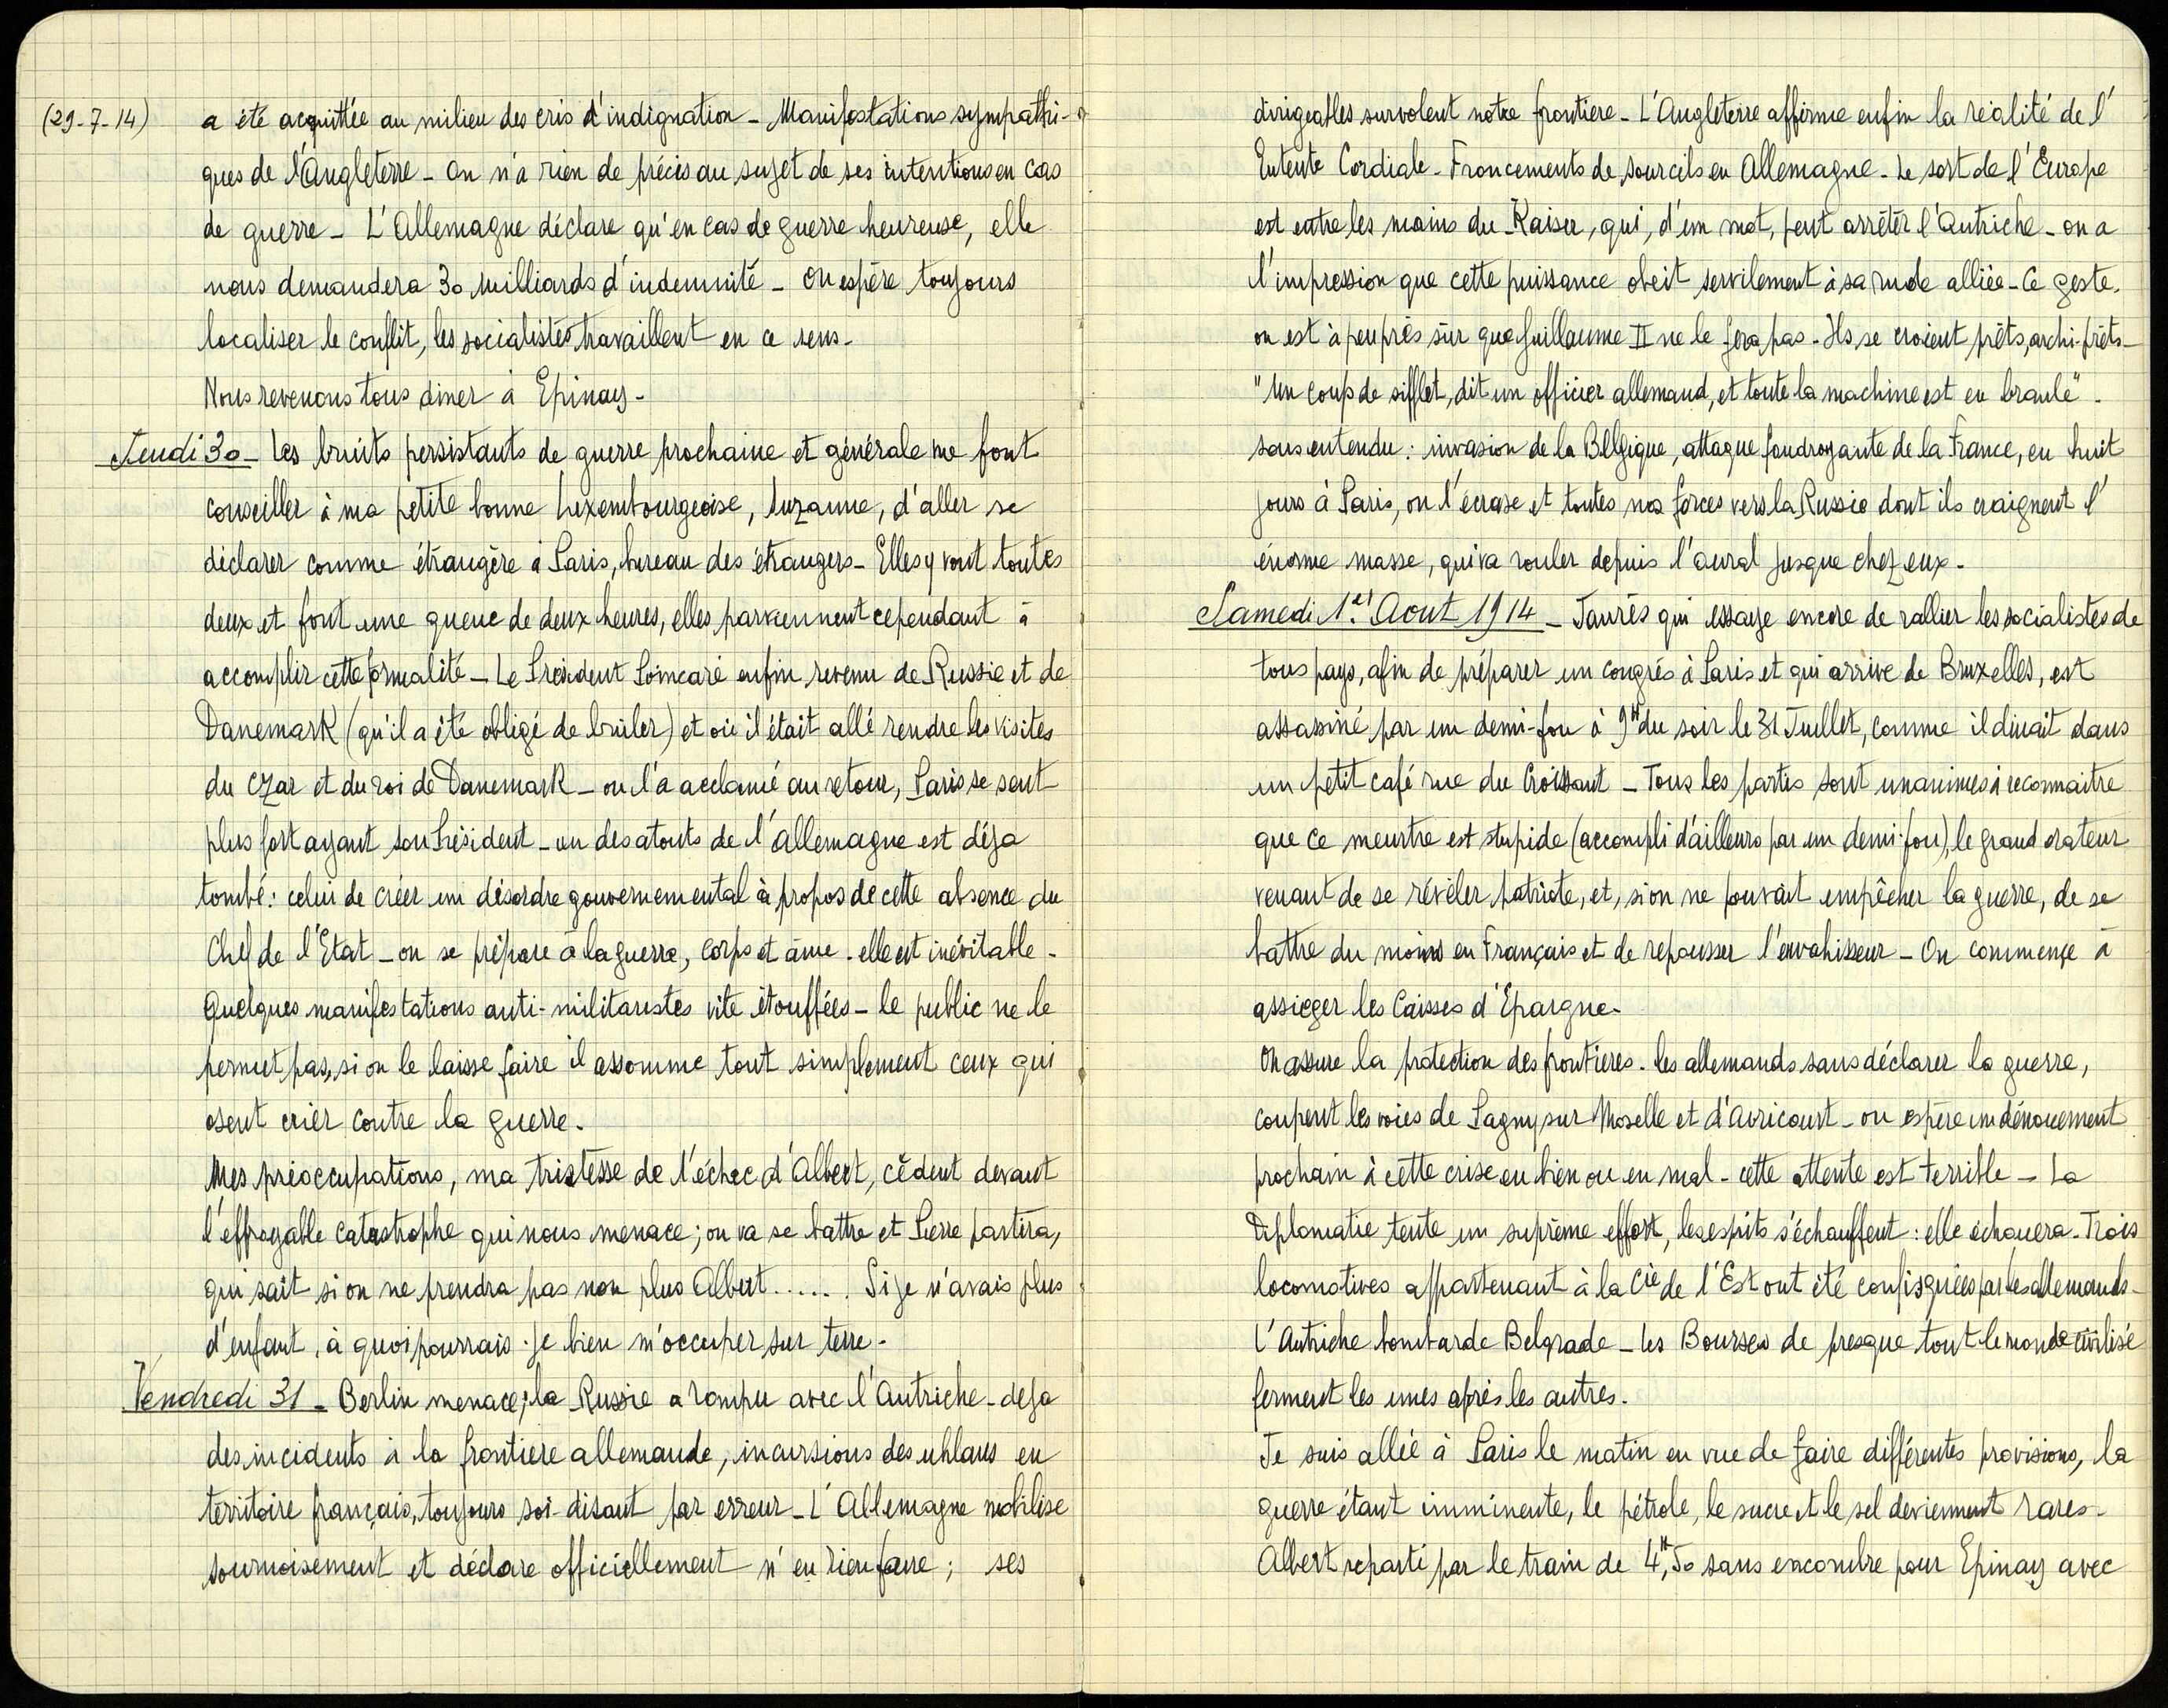 (29-7-14) a été acquittée au milieu des cris d'indignation - Manifestations sympathi-
ques de l'Angleterre - On n'a rien de précis au sujet de ses intentions en cas
de guerre - L'Allemagne déclare qu'en cas de guerre heureuse, elle
nous demandera 30 milliards d'indemnité - On espère toujours
localiser le conflit, les socialistes travaillent en ce sens -
Nous revenons tous diner à Epinay -
Jeudi 30 - Les bruits persistants de guerre prochaine et générale me font
conseiller à ma petite bonne Luxembourgeoise, Suzanne, d'aller se
déclarer comme étrangère à Paris, bureau des étrangers - Elles y vont toutes
deux et font une queue de deux heures, elles parviennent cependant à
accomplir cette formalité - Le Président Poincaré enfin revenu de Russie et de
Danemark (qu'il a été obligé de brûler) et où il était allé rendre les visites
du czar et du roi de Danemark - on l'a acclamé au retour, Paris se sent
plus fort ayant son Président - un des atouts de l'allemagne est déja
tombé : celui de créer un désordre gouvernemental à propos de cette absence du
Chef de l'Etat - on se prépare à la guerre, corps et âme - elle est inévitable -
Quelques manifestations anti-militaristes vite étouffées - le public ne le
permet pas, si on le laisse faire il assomme tout simplement ceux qui
osent crier contre la guerre.
Mes préoccupations, ma tristesse de l'échec d'Albert, cèdent devant
l'effroyable catastrophe qui nous menace ; on va se battre et Pierre partira,
qui sait si on ne prendra pas non plus Albert...... Si je n'avais plus
d'enfant, à quoi pourrais-je bien m'occuper sur terre -
Vendredi 31 - Berlin menace ; la Russie a rompu avec l'Autriche - deja
des incidents à la frontiere allemande, incursions des uhlans en
territoire français, toujours soi-disant par erreur - L'Allemagne mobilise
sournoisement et déclare officiellement n'en rien faire ; ses
dirigeables survolent notre frontiere - L'Angleterre affirme enfin la réalité de l'
Entente Cordiale - Froncements de sourcils en Allemagne - Le sort de l'Europe
est entre les mains du Kaiser, qui, d'un mot, peut arrêter l'Autriche - on a
l'impression que cette puissance obeit servilement à sa rude alliée - Ce geste,
on est à peu près sûr que Guillaume II ne le fera pas - Ils se croient prêts, archi-prêts -
"Un coup de sifflet, dit un officier allemand, et toute la machine est en branle" -
sous entendu : invasion de la Belgique, attaque foudroyante de la France, en huit
jours à Paris, on l'écrase et toutes nos forces vers la Russie dont ils craignent l'
énorme masse, qui va rouler depuis l'aural jusque chez eux -
Samedi 1er Aout 1914 - Jaurès qui essaye encore de rallier les socialistes de
tous pays, afin de préparer un congrès à Paris et qui arrive de Bruxelles, est
assassiné par un demi-fou à 9H du soir le 31 Juillet, comme il dinait dans
un petit café rue du Croissant - Tous les partis sont unanimes à reconnaitre
que ce meurtre est stupide (accompli d'ailleurs par un demi-fou), le grand orateur
venant de se révéler patriote, et, si on ne pouvait empêcher la guerre, de se
battre du moins en Français et de repousser l'envahisseur - On commence à
assieger les Caisses d'Epargne -
On assure la protection des frontieres - les allemands sans déclarer la guerre,
coupent les voies de Pagny sur Moselle et d'Avricourt - on espère un dénouement
prochain à cette crise en bien ou en mal - cette attente est terrible - La
Diplomatie tente un suprême effort, les espits s'échauffent : elle échouera - Trois
locomotives appartenant à la Cie de l'Est ont été confisquées par les allemands -
L'Autriche bombarde Belgrade - les Bourses de presque tout le monde civilisé
ferment les unes après les autres.
Je suis allée à Paris le matin en vue de faire différentes provisions, la
guerre étant imminente, le pétrole, le sucre et le sel deviennent rares -
Albert reparti par le train de 4H,50 sans encombre pour Epinay avec